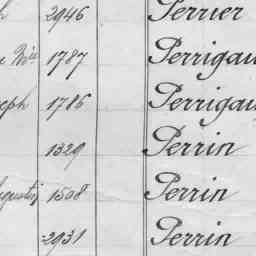 2946 Perrier
1787 Perrigau
eph 1786 Perrigau
1329 Perrin
1508 Perrin
2931 Perrin